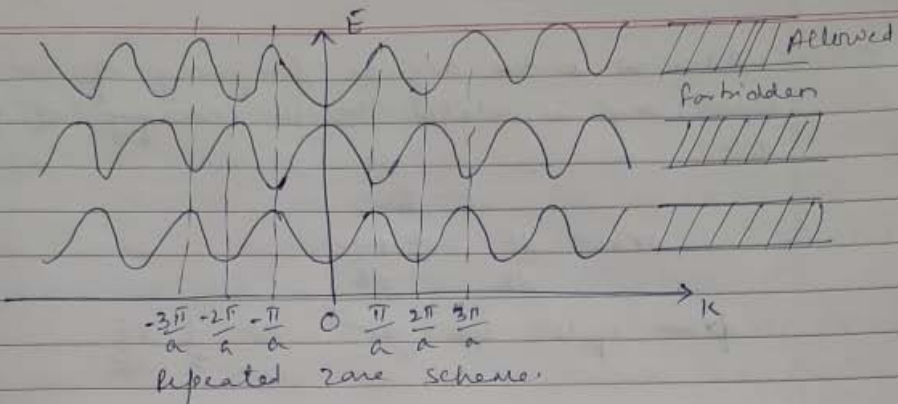 E
Allowed
forbidden
-3π/a -2π/a -π/a O π/a 2π/a 3π/a
K
Repeated zone scheme.